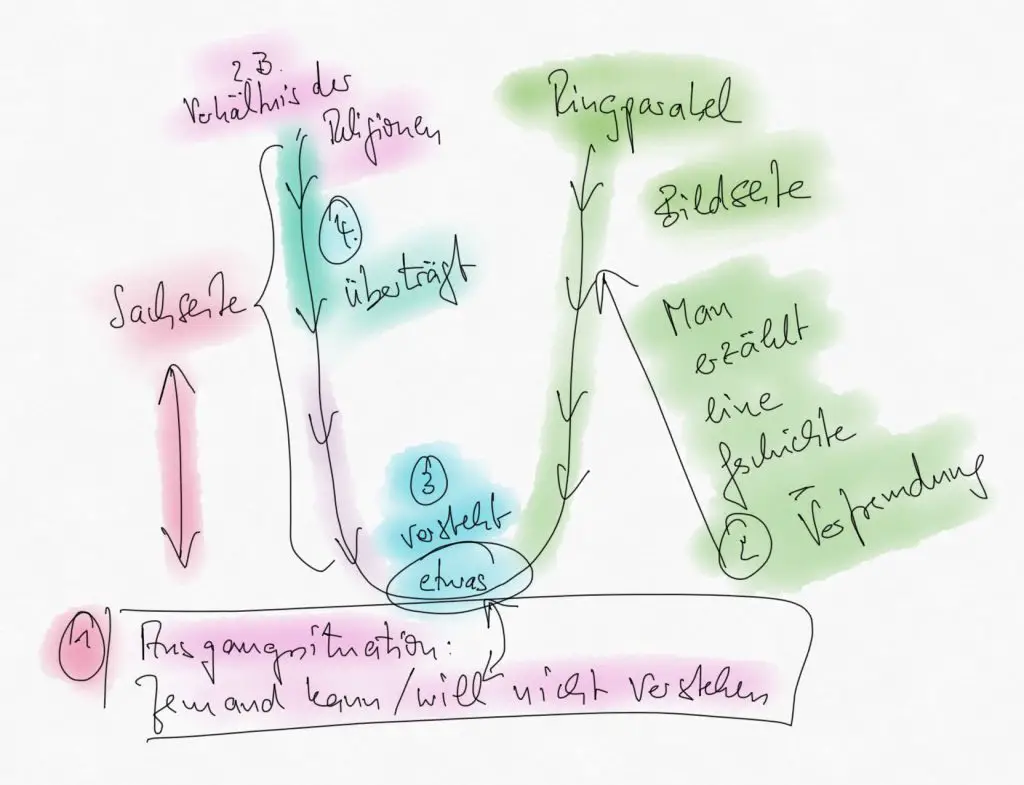 z.B.
Verhältnis der
Religionen
Ringparabel
Bildseite
4.
überträgt
Sachseite
Man
erzählt
eine
Gschichte
=
Verfremdung
2
3
versteht
etwas
1
Ausgangssituation:
Jemand kann/will nicht verstehen